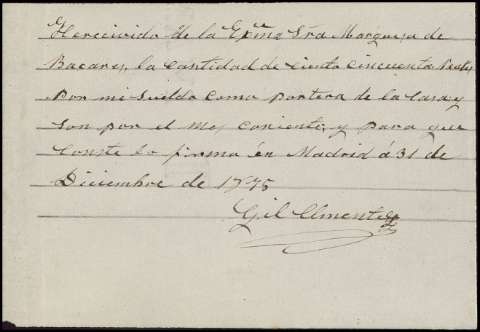 He recivido de la Exma Sra Marquesa de
Bacares, la cantidad de ciento cincuenta Reales
por mi sueldo como portera de la casa y
son por el mes coriente, y para que
conste lo firma en Madrid á 31 de
Diciembre de 1875
Gil Clmente